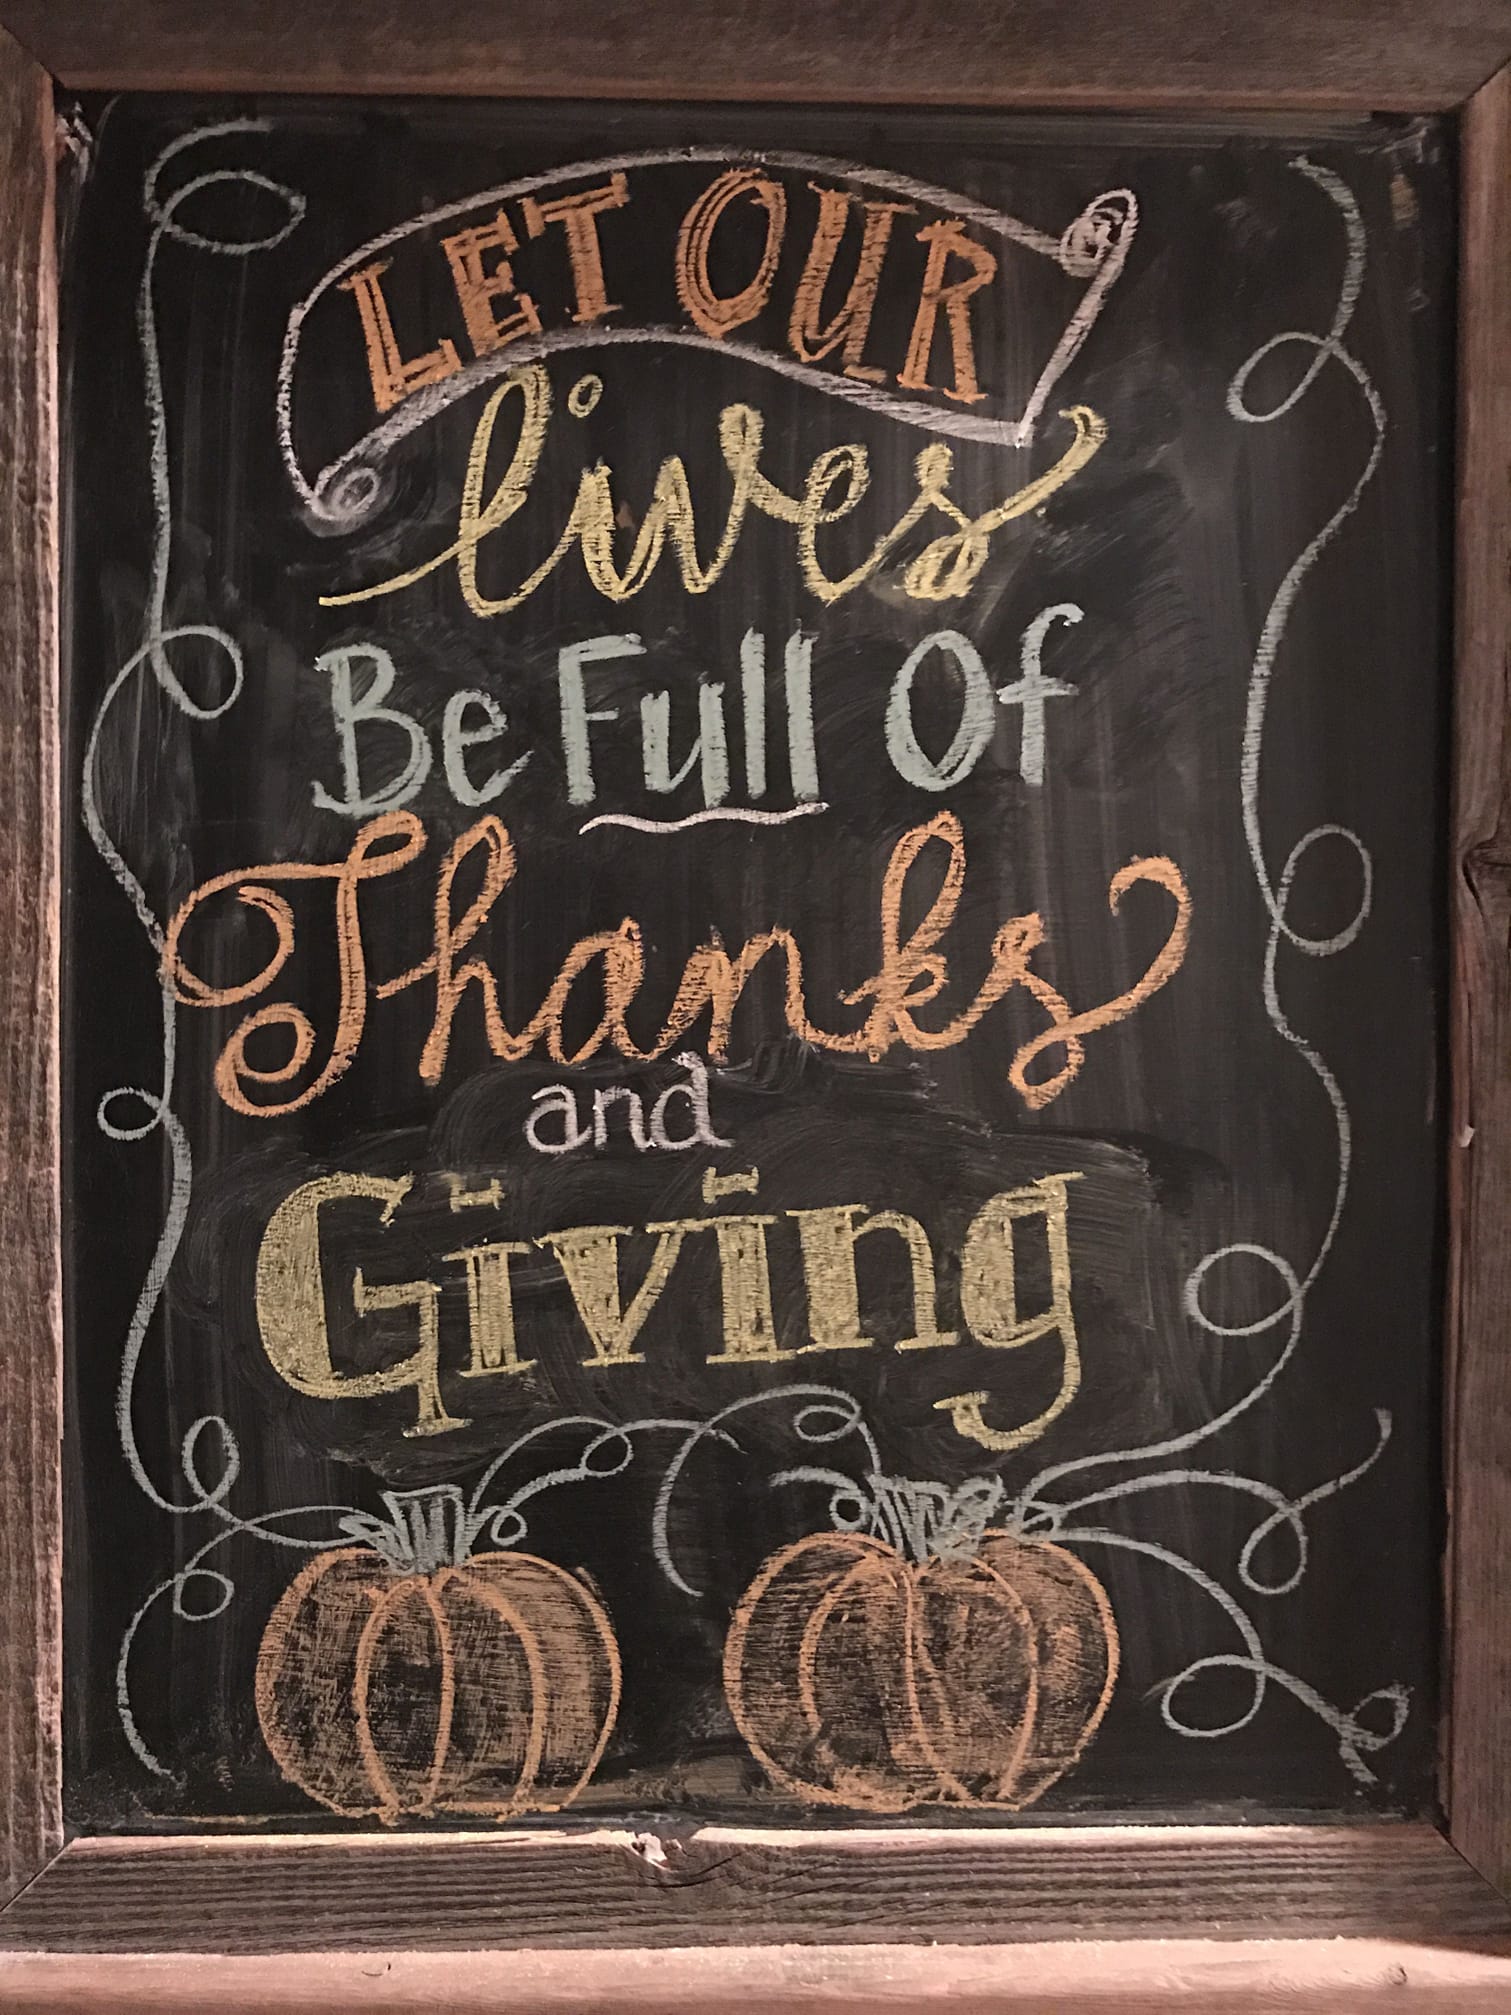 LET OUR
lives
Be Full Of
Thanks
and
Giving